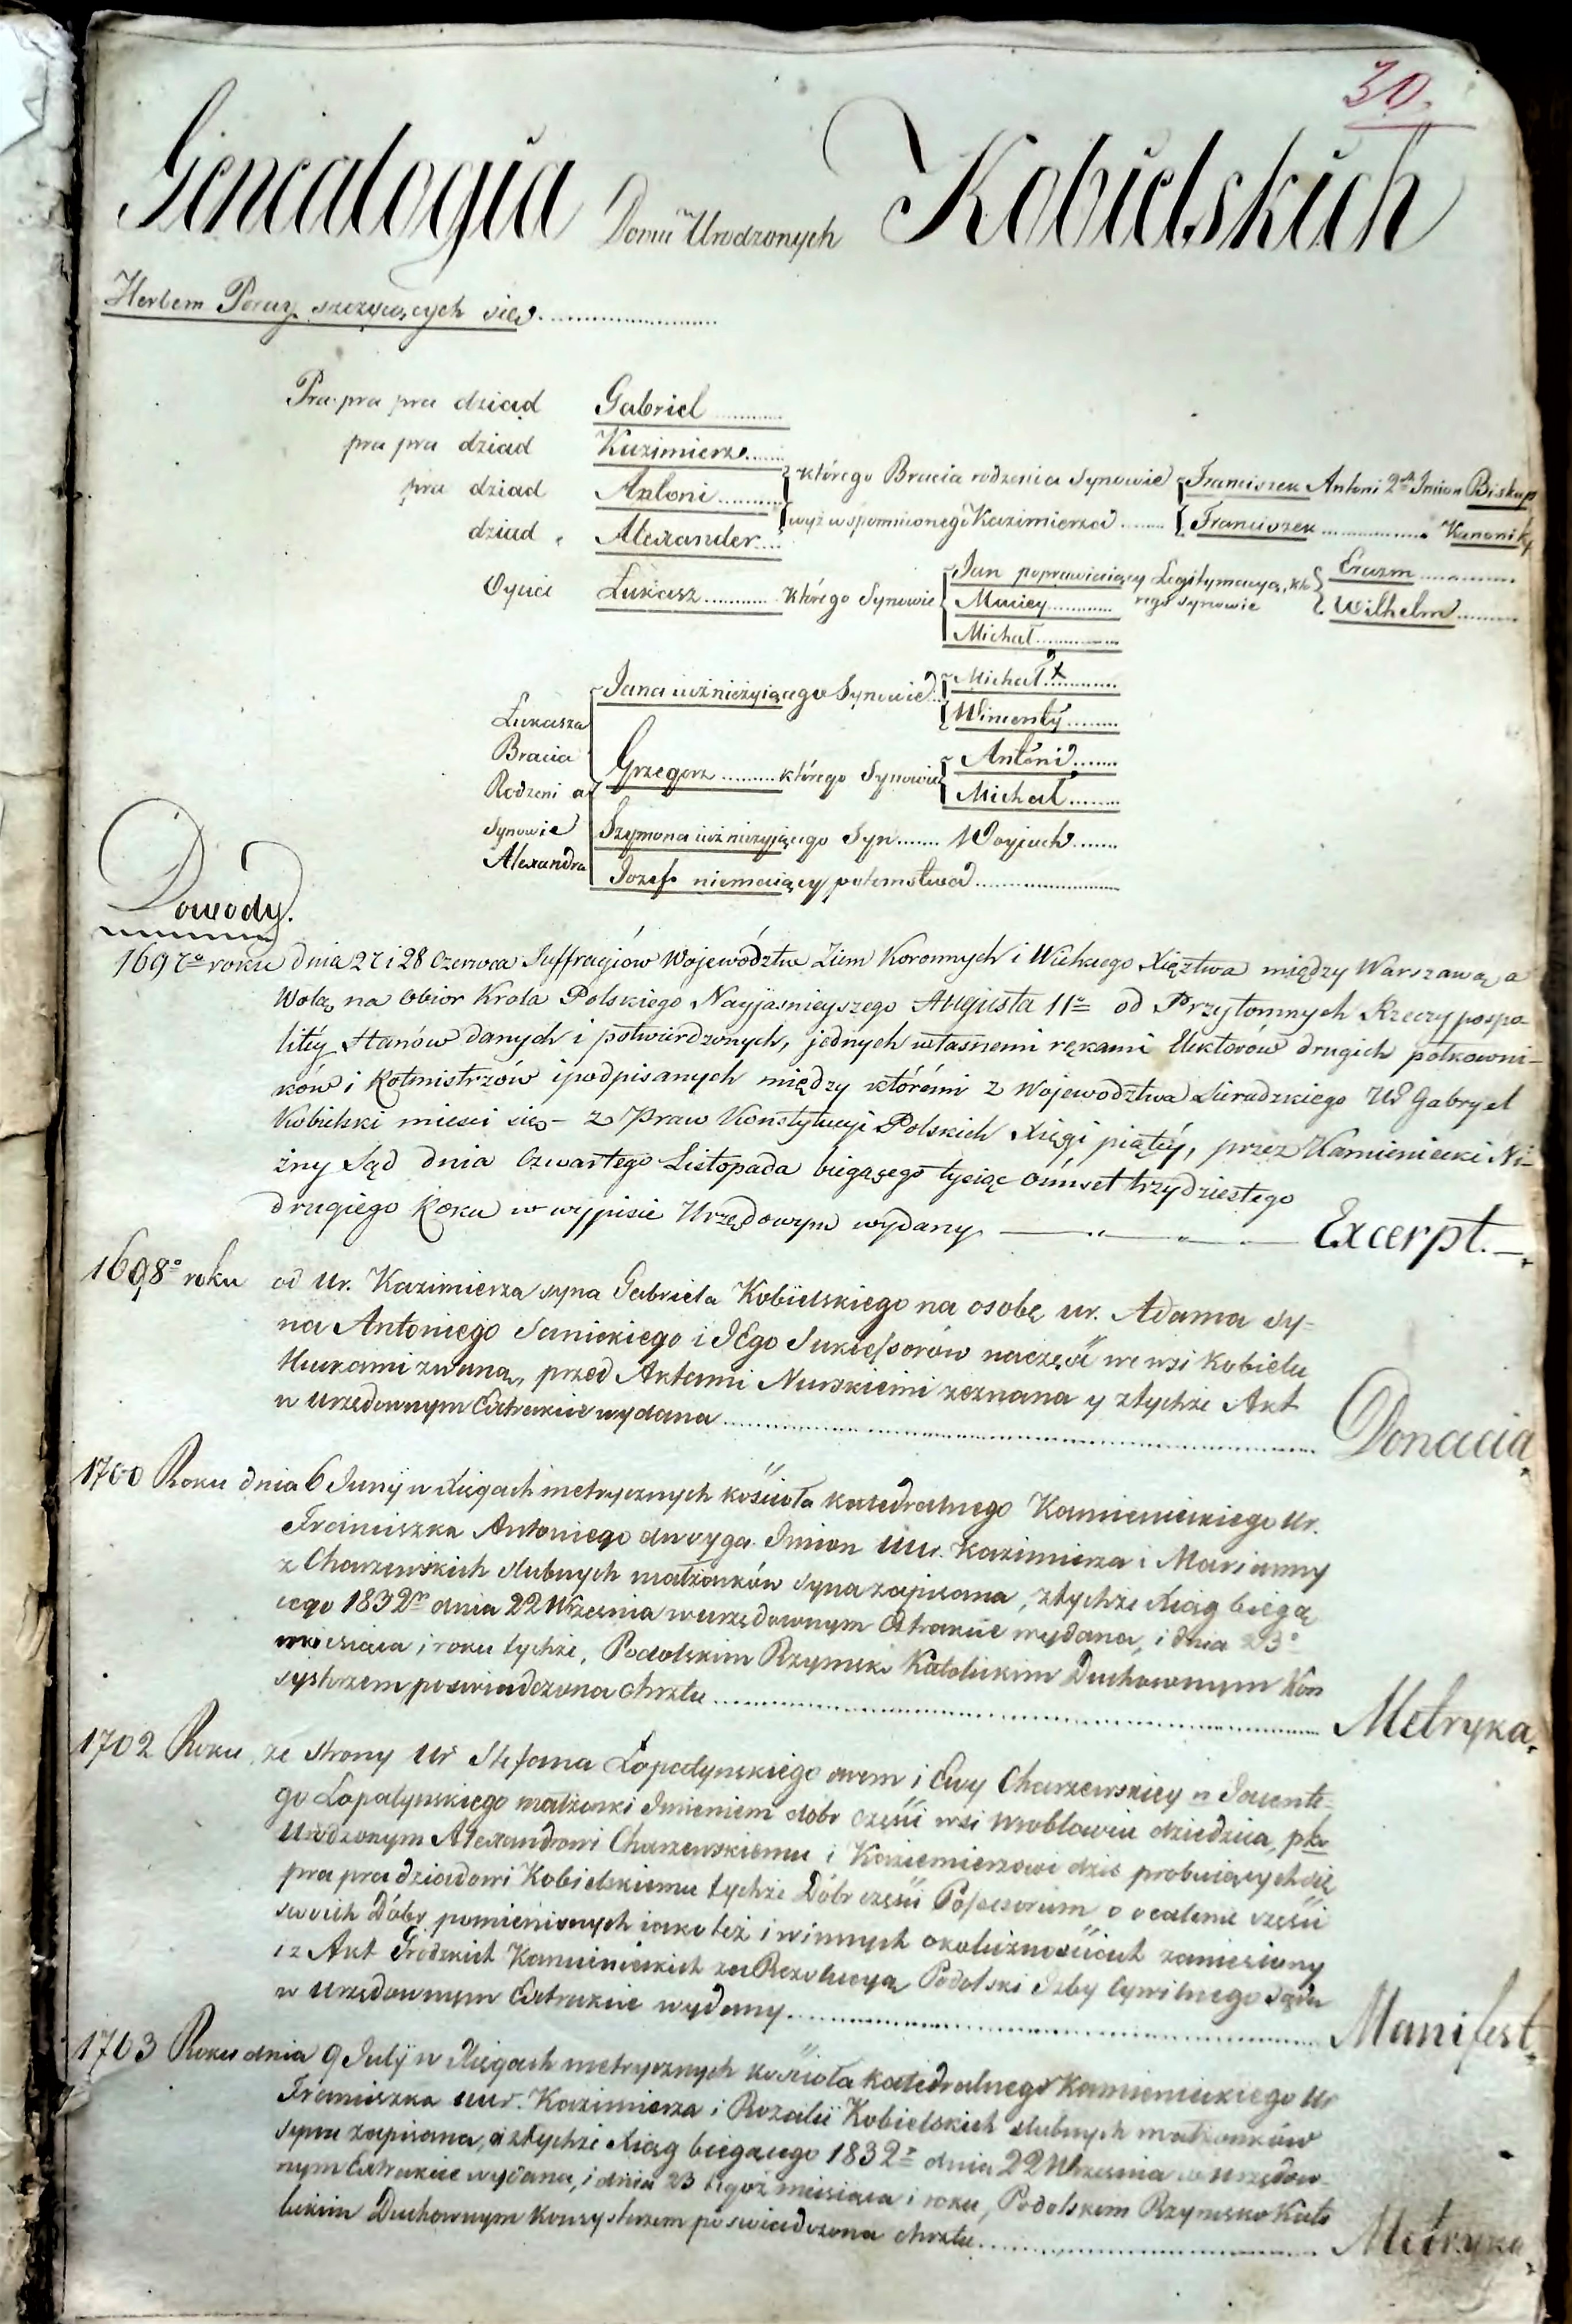 30.
Genealogia Domu Urodzonych Kobielskich
Herbem Poray szczycących się
Pra pra pra dziad Gabriel
pra pra dziad Kazimierz
pra dziad Antoni którego Bracia rodzenia Synowie Franciszek Antoni 2ch Imion Biskup
dziad Alexander wyż wspomnionego Kazimierza Franciszek Kanonik
Oyciec Łukasz którego Synowie Jan poprawiaiący Legitymacyą, którego synowie Erazm
Maciey Wilhelm
Michał
Łukasza Bracia Rodzeni a Synowie Alexandra
Jana iuż nieżyiącego Synowie Michał x
Wincenty
Grzegorz którego Synowie Antoni
Michał
Szymona iuż nieżyjącego Syn Woyciech
Jozef niemaiący potomstwa
Dowody.
1697o roku dnia 27 i 28 Czerwca Suffragiów Województw Ziem Koronnych i Wielkiego Xięztwa między Warszawą a
Wolą na Obior Krola Polskiego Nayjaśnieyszego Augusta IIo od Przytomnych Rzeczypospo-
litéy Stanów danych i potwierdzonych, jednych własnemi rękami Elektorów drugich półkowni-
ków i Rotmistrzów ipodpisanych między któremi z Województwa Sieradzkiego Ur Gabryel
Kobielski mieści się - z Praw Konstytucyi Polskich Xięgi piątéy, przez Kamieniecki Ni-
żny Sąd dnia Czwartego Listopada biegącego tysiąc ośmset trzydziestego
drugiego Roku w wypisie Urzędowym wydany Excerpt.
1698o roku od Ur. Kazimierza syna Gabriela Kobielskiego na osobę ur. Adama Sy-
na Antoniego Sanickiego i JEgo Sukcessorów na część we wsi Kobielu
zwaną, przed Aktami Nurskiemi zeznana y z tychże Akt
w urzędownym Extrakcie wydana Donacia.
1700 Roku dnia 6 Junÿ w Xięgach metrycznych kościoła katedralnego Kamienieckiego Ur.
Franciszka Antoniego dwoyga Imion uur. Kazimierza i Marianny
z Charzewskich slubnych małżonków syna zapisana, z tychże Xiąg biegą
cego 1832o dnia 22 Września w urzędownym Extrakcie wydana, i dnia 23o
miesiąca i roku tychże, Podolskim Rzymsko Katolickim Duchownym Kon
systorzem poswiadczona chrztu Metryka.
1702 Roku, ze strony Ur Stefana Łopatynskiego i Ewy Charzewskiey
go Łopatynskiego małżonki Imieniem dobr części wsi dziedzica,
Urodzonym Alexandrowi Charzewskiemu i Kazimierzowi dziś probuiących się
pra pra dziadowi Kobielskiemu tychże Dóbr części Possessorum o ocalenie części
swoich Dóbr pomienionych iako też i w innych okolicznościach zaniesiony
i z Akt Grodzkich Kamienieckich za Rezolucyą Podolski Izby Cywilnego Sądu
w urzędownym Extrakcie wydany Manifest.
1703 Roku dnia 9 Julÿ w Xięgach metrycznych kościoła katedralnego Kamienieckiego Ur
Franciszka uur. Kazimierza i Rozalii Kobielskich slubnych małżonków
syna zapisana, a z tychże Xiąg biegącego 1832o dnia 22 Września w urzędow-
nym Extrakcie wydana, i dnia 23 tegoż miesiąca i roku, Podolskim Rzymsko Kato
lickim Duchownym Konsystorzem poswiadczona chrztu Metryka.